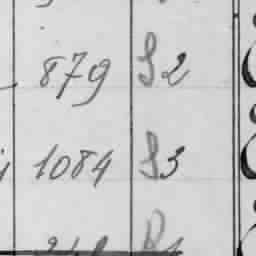 879 S2
1084 S3